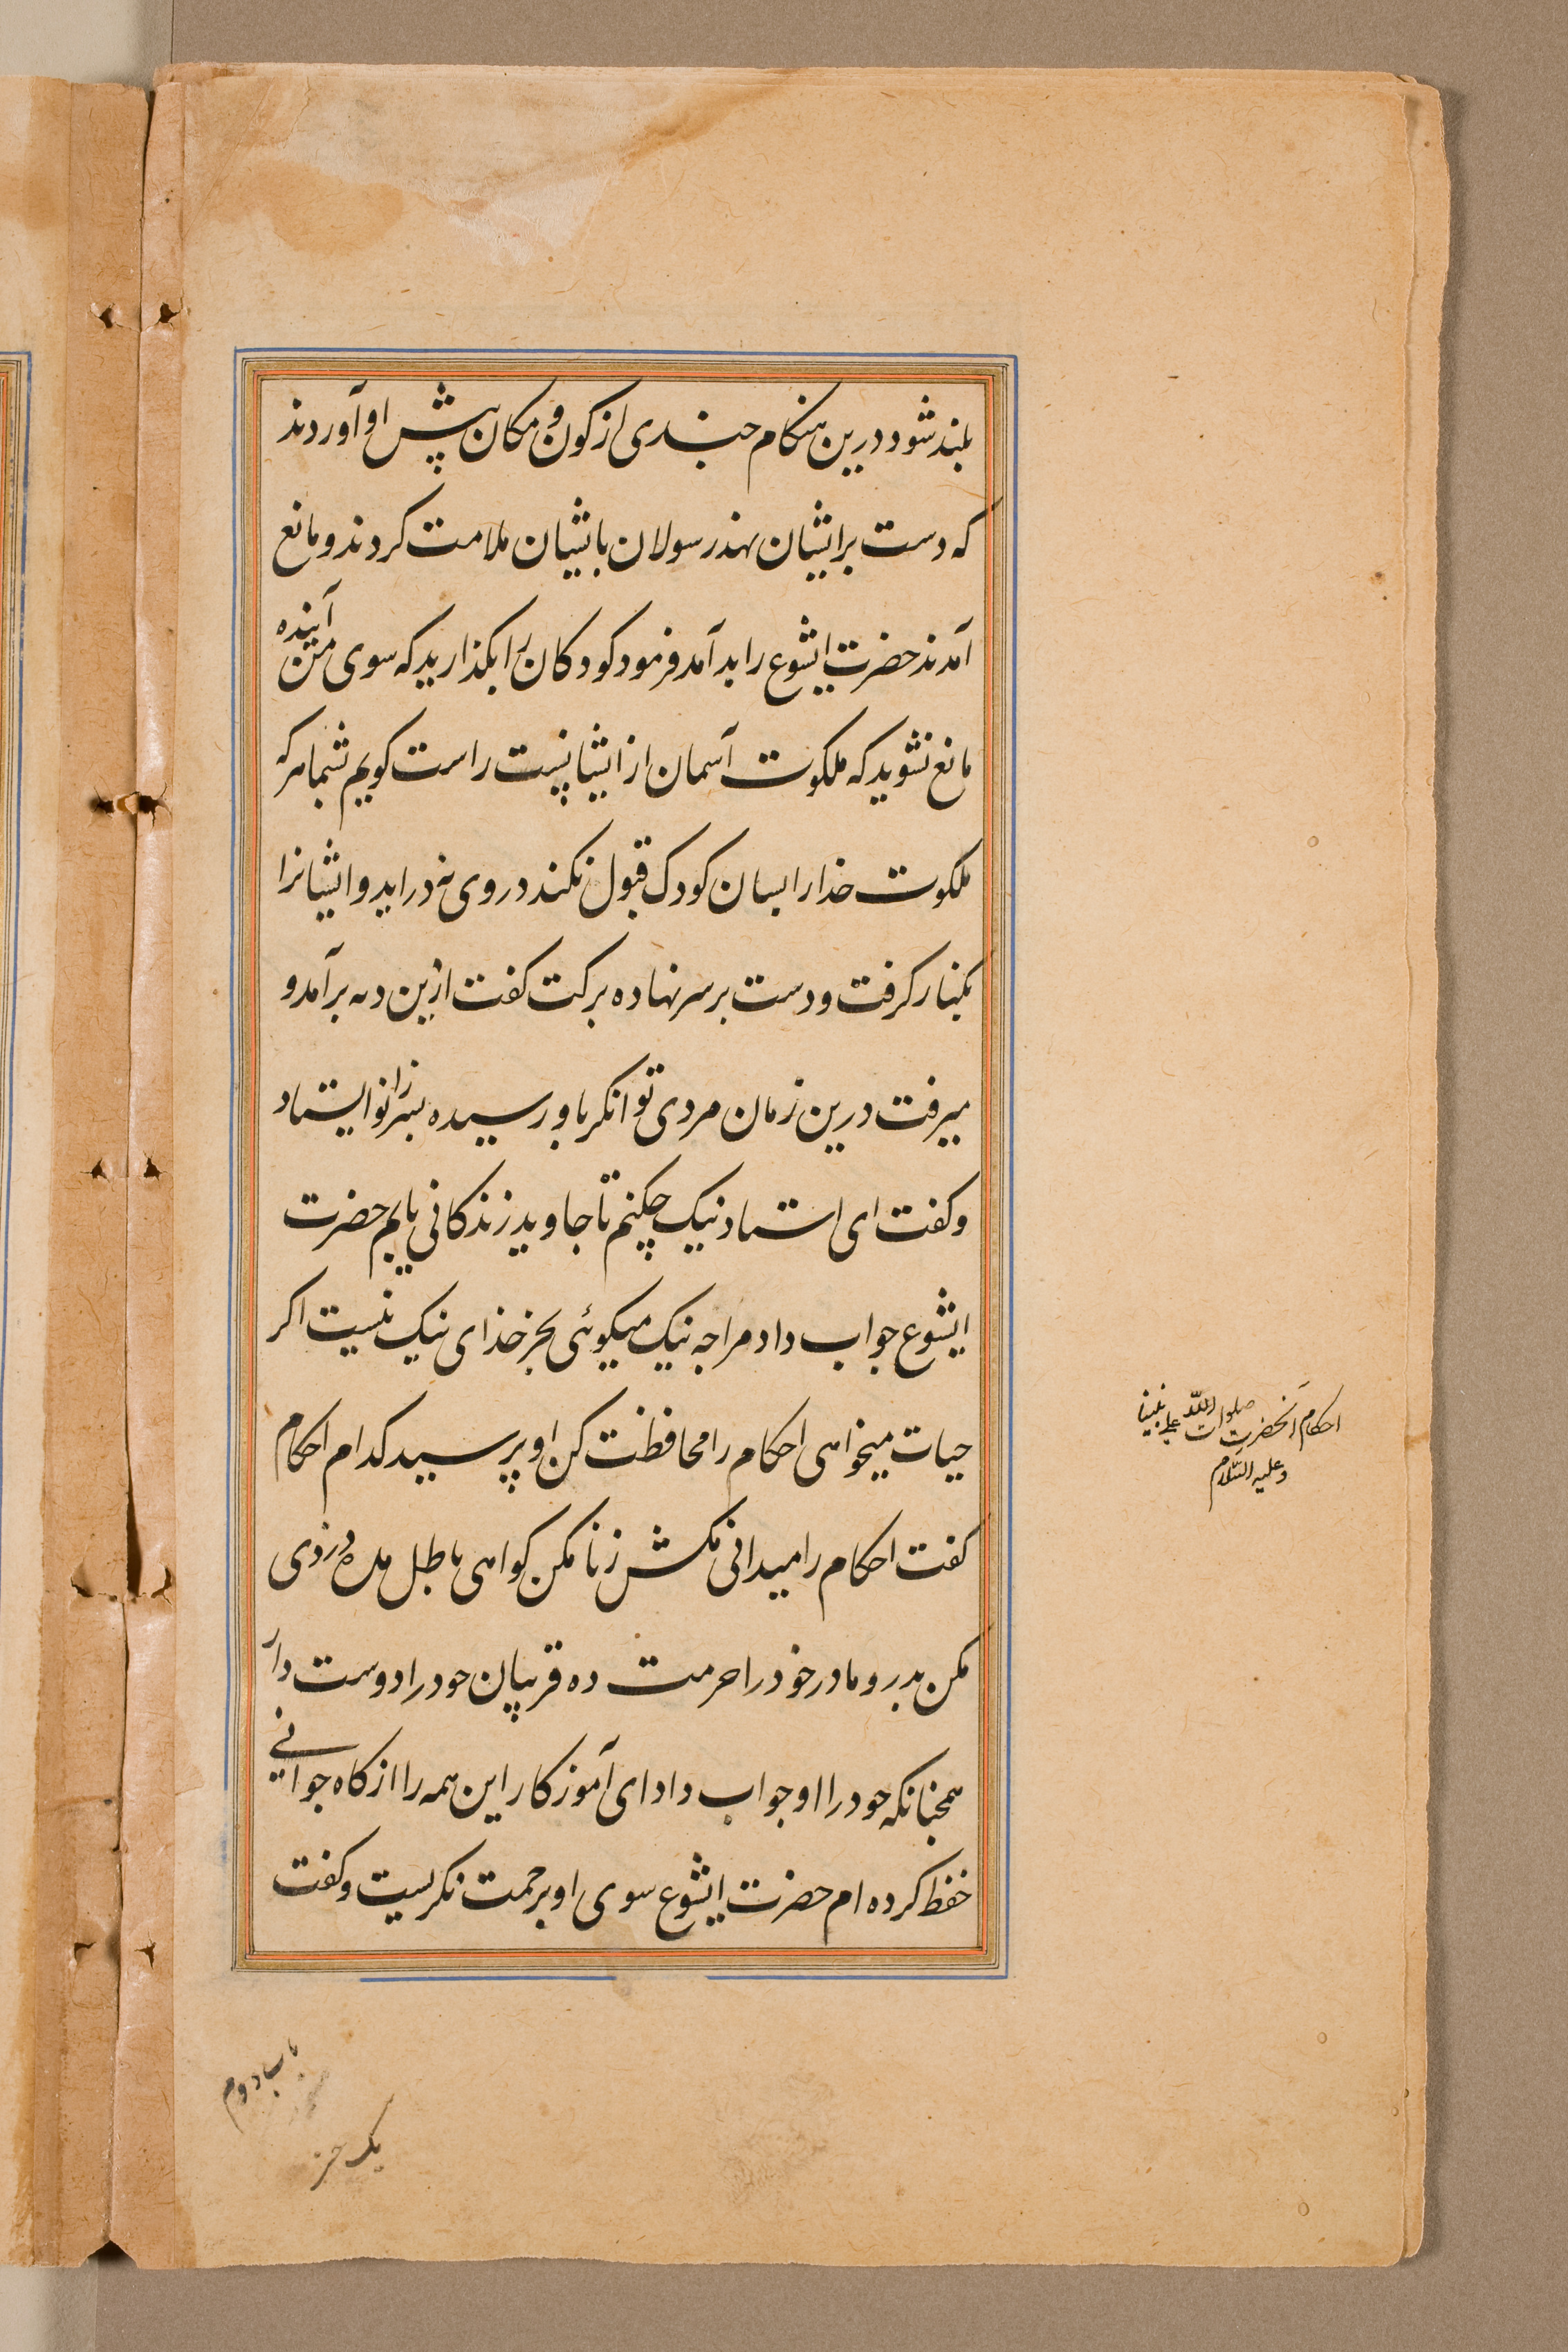 بلند شود درین هنکام چندی از کون و مکان پیش او آوردند
که دست برایشان نهد رسولان بایشیان ملامت کردند و مانع
آمدند حضرت ایشوع را بد آمد فرمود کودکان را بکذارید که سوی من آینده
مانع نشوید که ملکوت آسمان از ایشانست راست کویم بشما هرکه
ملکوت خدا را بسان کودک قبول نکند در وی نه دراید و ایشانرا
بکنار کرفت و دست بر سر نهاده برکت کفت ازین ده برآمد و
میرفت درین زمان مردی توانکر باو رسیده بسر زانو ایستاد
و کفت ای استاد نیک چکنم تا جاوید زندکانی یابم حضرت
ایشوع جواب داد مرا چه نیک میکوئی بجز خدای نیک نیست اکر
حیات میخواهی احکام را محافظت کن او پرسید کدام احکام
کفت احکام را میدانی مکش زنا مکن کواهی باطل مده دزدی
مکن پدر و مادر خود را حرمت ده قریبان خود را دوست دار
همچنانکه خود را او جواب داد ای آموزکار این همه را از کاه جوانی
حفظ کرده ام حضرت ایشوع سوی او برحمت نکریست و کفت
احکام آنحضرت صلوات الله علی نبینا
وعلیه السّلام
باب دوم
یک جز